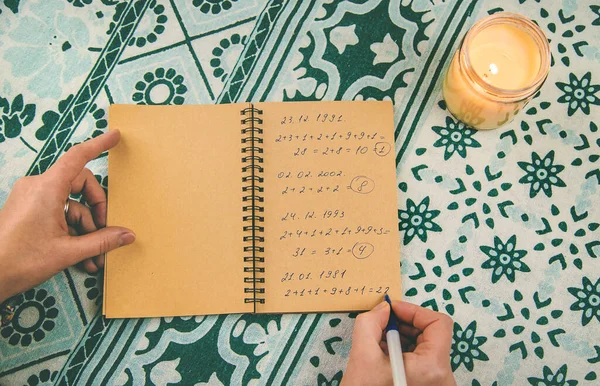 23.12.1991.
2+3+1+2+1+9+9+1=
28=2+8=10=1
02.02.2002.
2+2+2+2=8
24.12.1993
2+4+1+2+1+9+9+3=
31=3+1=4
21.01.1981
2+1+1+9+8+1=22